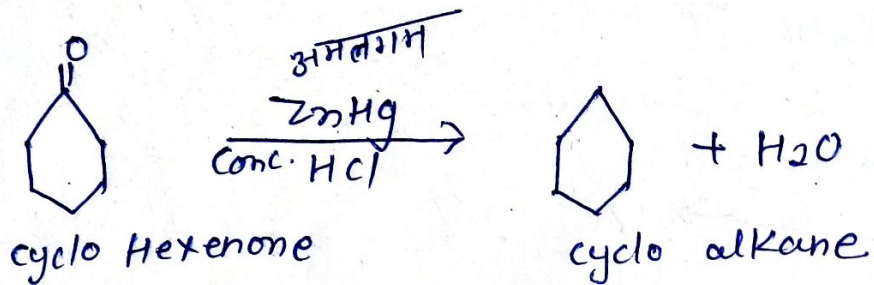 O
अमलगम
ZnHg
conc. HCl
+ H2O
cyclo Hexenone
cyclo alkane